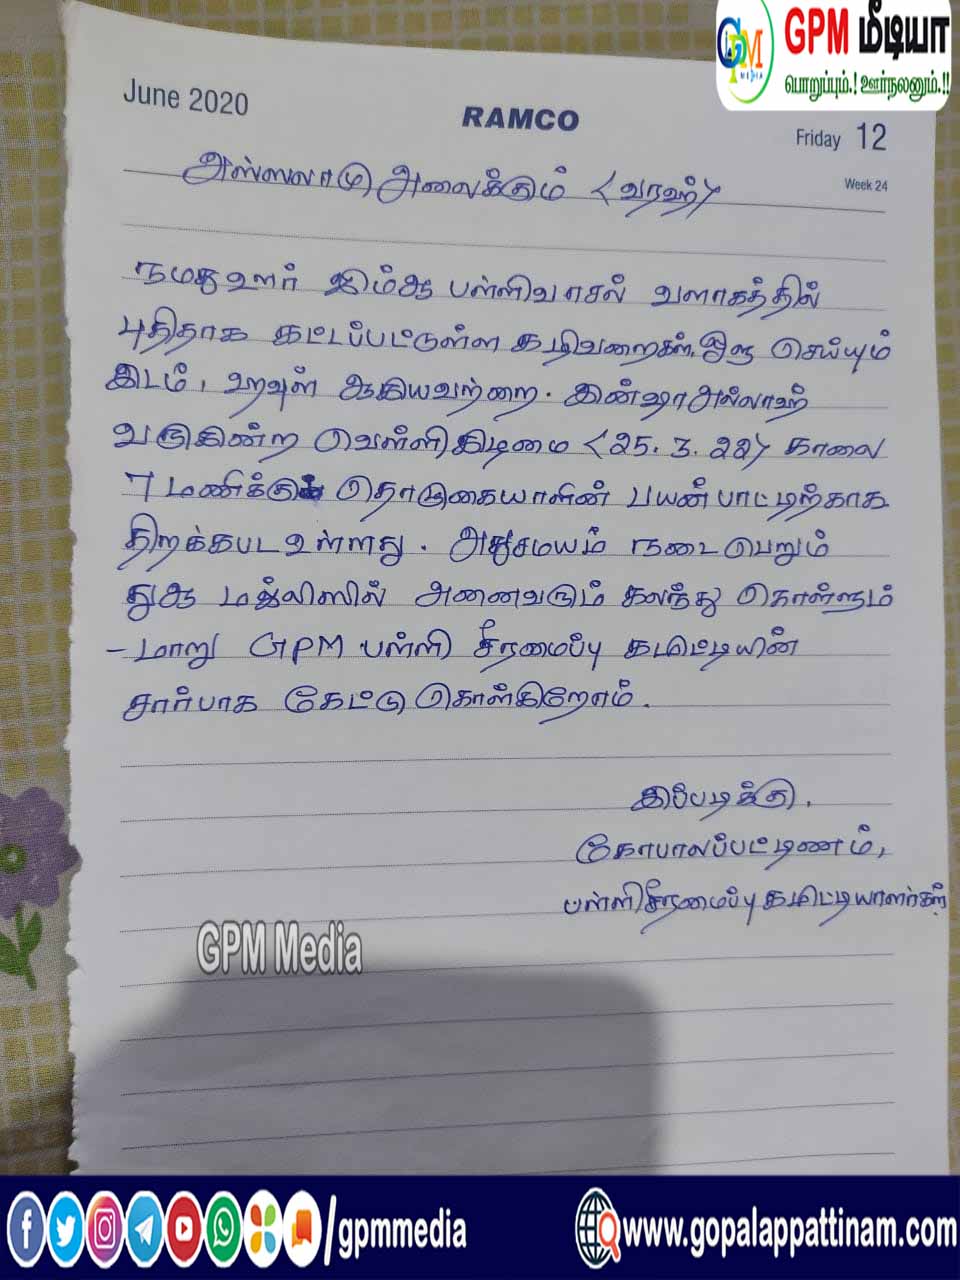 GPM மீடியா
பொறுப்பும்.! ஊர்நலனும்.!!
GPM
MEDIA
June 2020
RAMCO
Friday 12
Week 24
அஸ்ஸலாமு அலைக்கும் <வரஹ்>
நமதுஊர் ஜும்ஆ பள்ளிவாசல் வளாகத்தில்
புதிதாக கட்டப்பட்டுள்ள கழிவறைகள், ஒளு செய்யும்
இடம், ஹவுள் ஆகியவற்றை. இன்ஷாஅல்லாஹ்
வருகின்ற வெள்ளிகிழமை <25.3.22> காலை
7 மணிக்கு தொழுகையாளின் பயன்பாட்டிற்காக
திறக்கபட உள்ளது. அதுசமயம் நடைபெறும்
துஆ மஜ்லிஸில் அனைவரும் கலந்து கொள்ளும்
-மாறு GPM பள்ளி சீரமைப்பு கமிட்டியின்
சார்பாக கேட்டு கொள்கிறோம்.
இப்படிக்கு,
கோபாலப்பட்டிணம்,
பள்ளிசீரமைப்பு கமிட்டியாளர்கள்
GPM Media
/gpmmedia
www.gopalappattinam.com